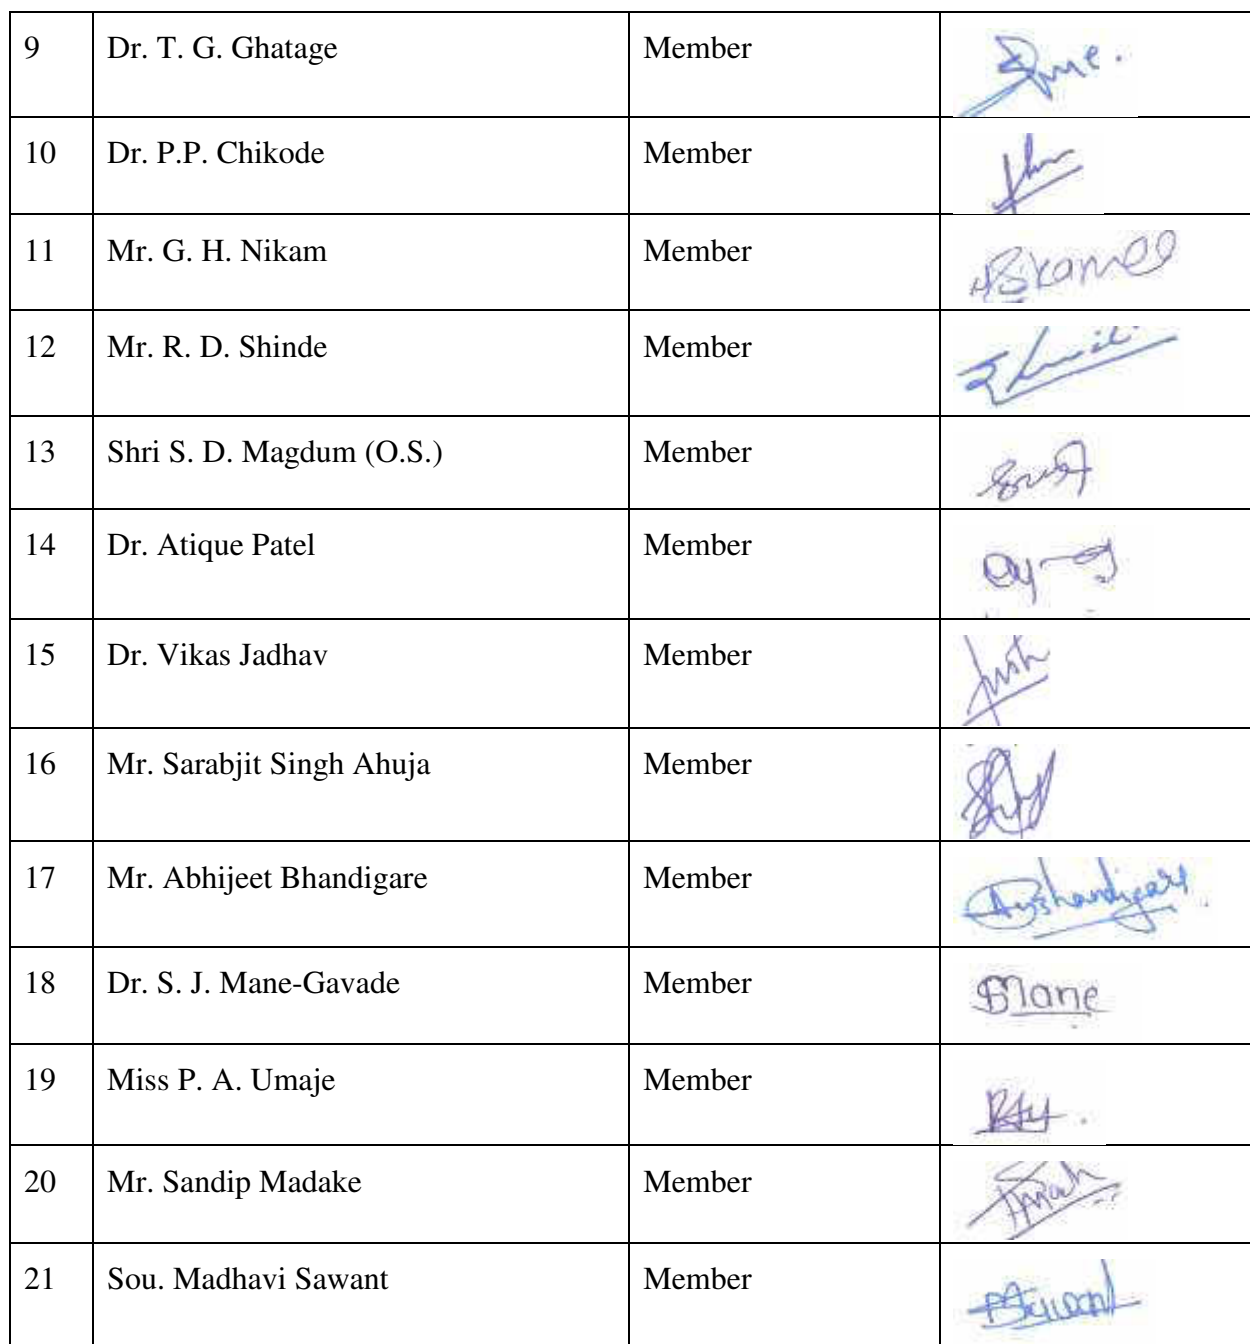 9 Dr. T. G. Ghatage Member
10 Dr. P.P. Chikode Member
11 Mr. G. H. Nikam Member
12 Mr. R. D. Shinde Member
13 Shri S. D. Magdum (O.S.) Member
14 Dr. Atique Patel Member
15 Dr. Vikas Jadhav Member
16 Mr. Sarabjit Singh Ahuja Member
17 Mr. Abhijeet Bhandigare Member
18 Dr. S. J. Mane-Gavade Member SMane
19 Miss P. A. Umaje Member
20 Mr. Sandip Madake Member
21 Sou. Madhavi Sawant Member